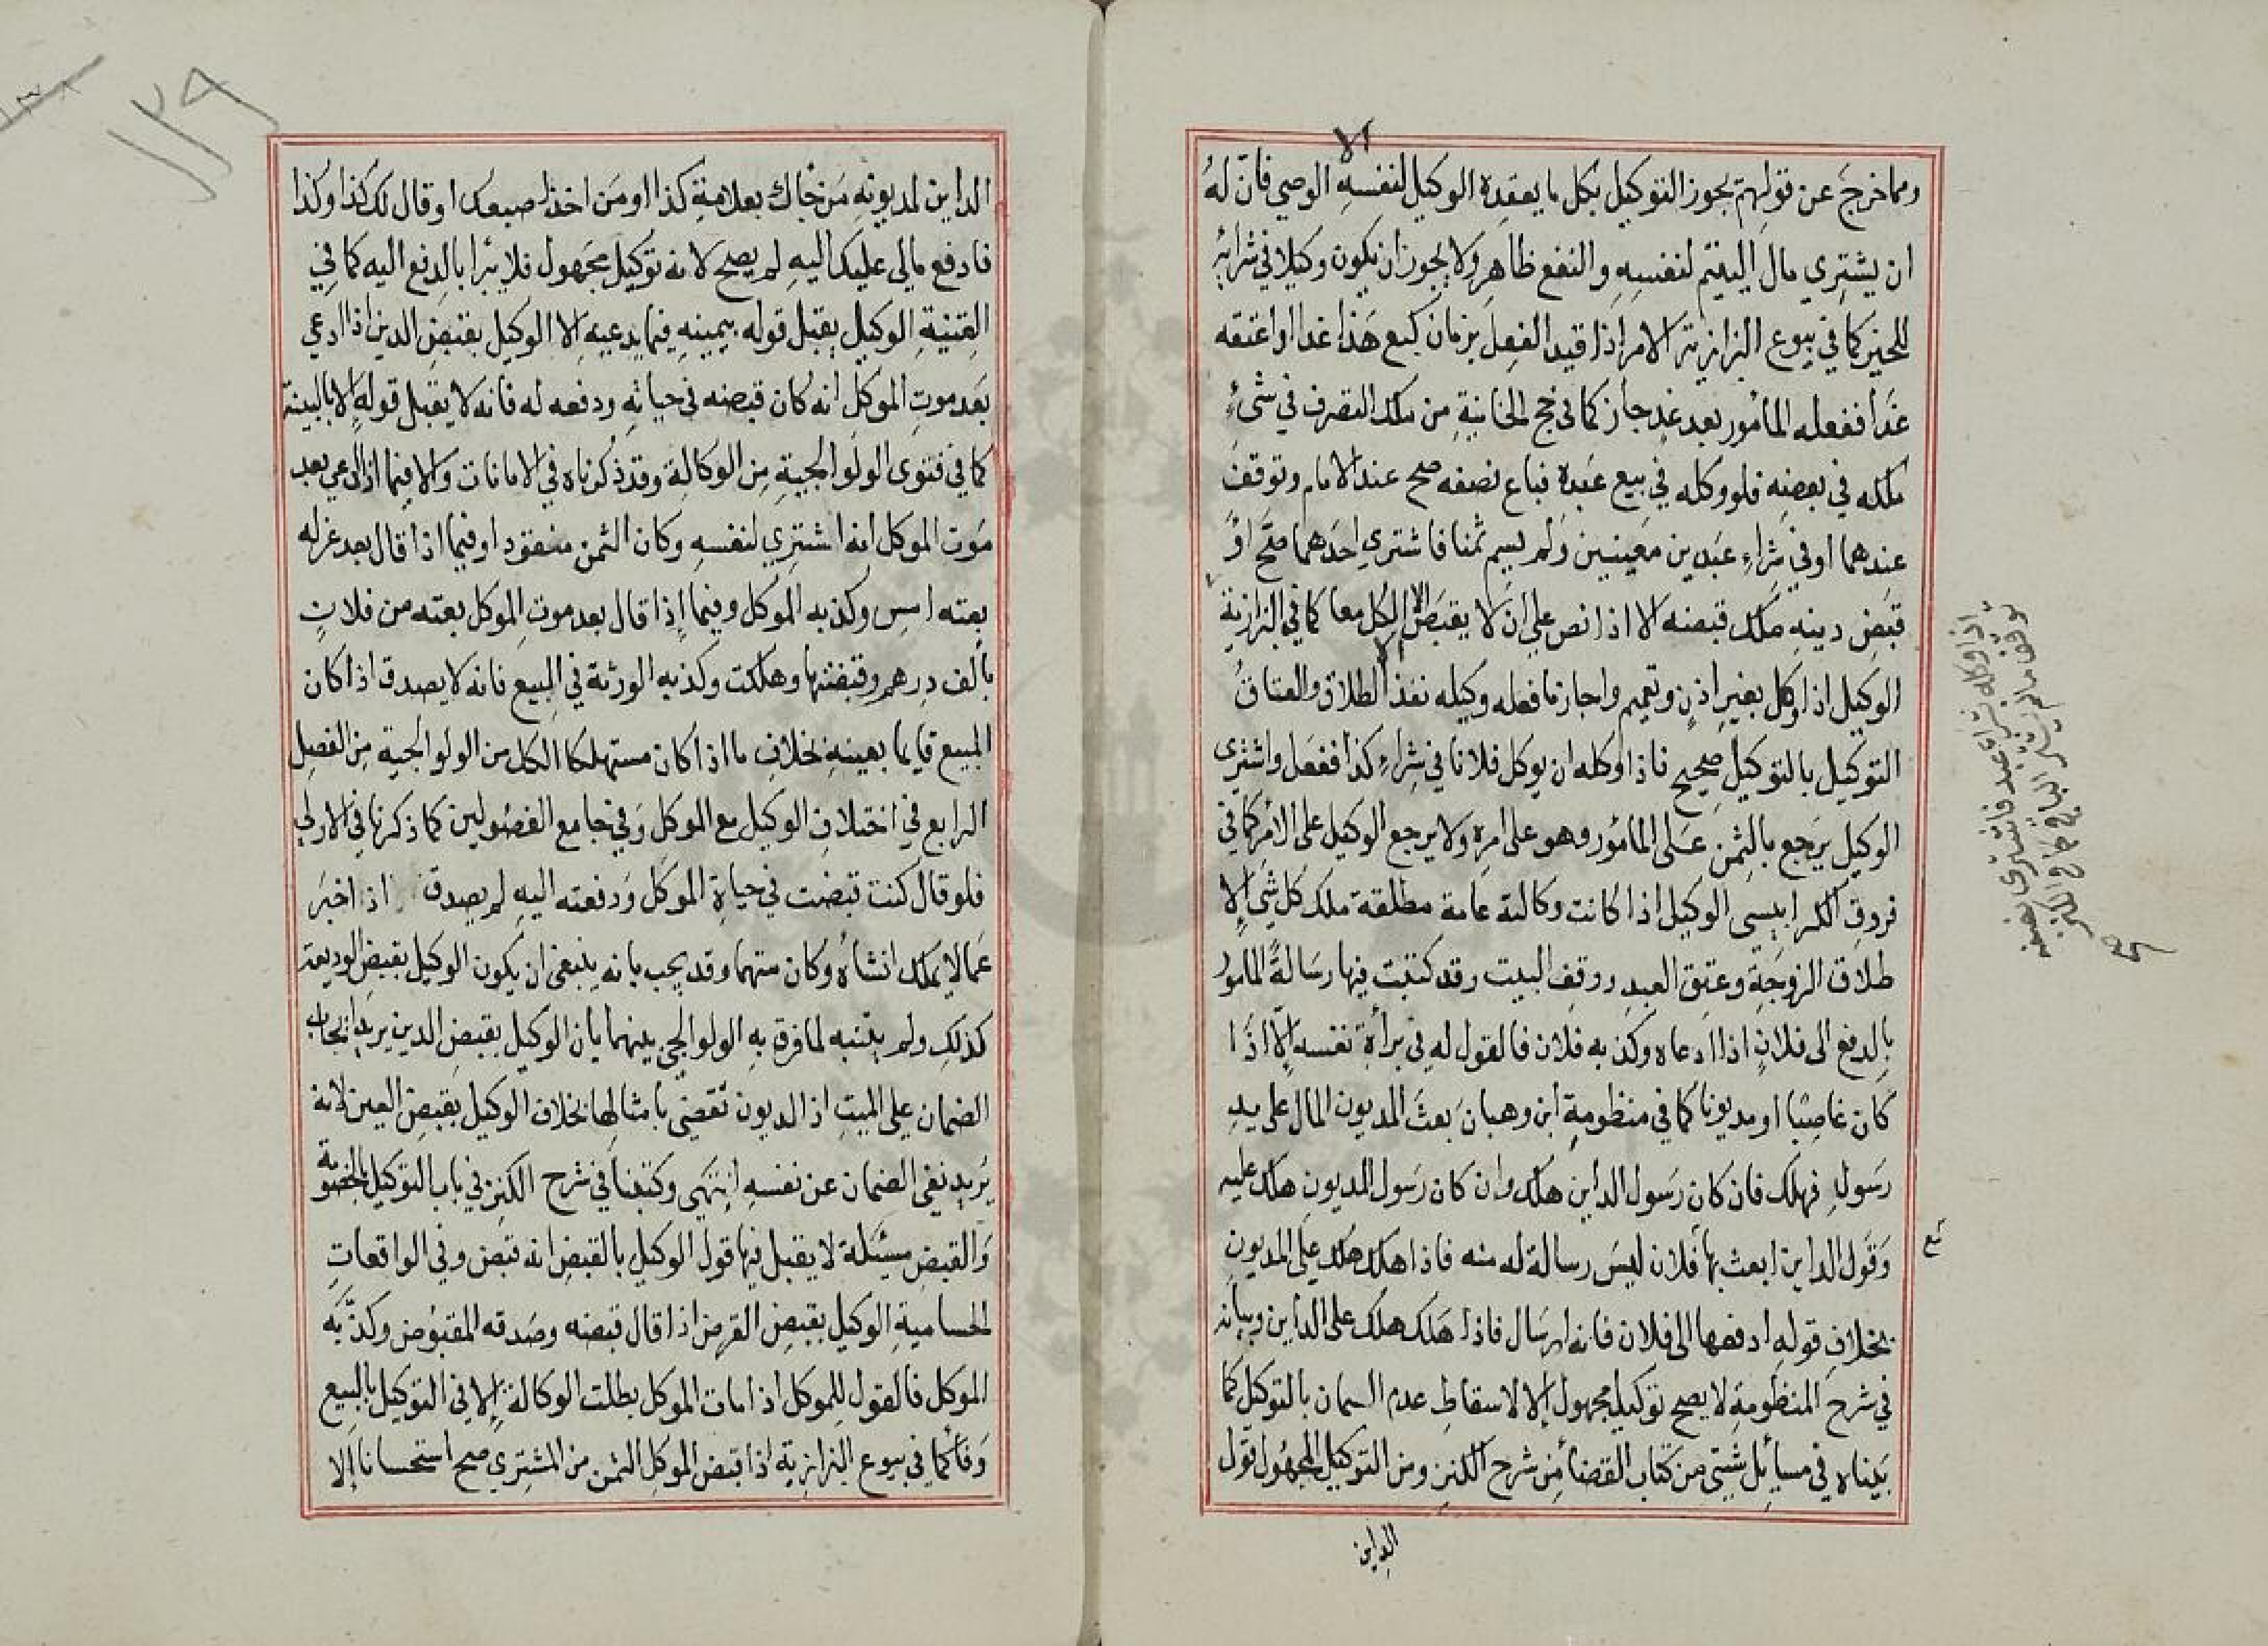 الا
ومما خرج عن قولهم يجوز التوكيل بكل ما يعقده الوكيل لنفسه الوصي فان له
ان يشتري مال اليتيم لنفسه والنفع ظاهر ولا يجوز ان يكون وكيلا في شرائه
للخير كما في بيوع البزازية الامر اذا قيد الفعل بزمان كبع هذا غدا او اعتقه
غدا ففعله المأمور بعد غد جاز كما في حج الخانية من ملك التصرف في شيء
ملكه في بعضه فلو وكله في بيع عبده فباع نصفه صح عند الامام وتوقف
عندهما او في شراء عبدين معينين ولم يسم ثمنا فاشتري احدهما صح او
قبض دينه ملك قبضه الا اذا نص على ان لا يقبض الا الكل معا كما في البزازية
الوكيل اذا وكل بغير اذن وتعميم واجاز ما فعله وكيله نفذ الا الطلاق والعتاق
التوكيل بالتوكيل صحيح فاذا وكله ان يوكل فلانا في شراء كذا ففعل واشتري
الوكيل يرجع بالثمن على المأمور وهو على امره ولا يرجع الوكيل على الامر كما في
فروق الكرابيسى الوكيل اذا كانت وكالته عامة مطلقة ملك كل شي الا
طلاق الزوجة وعتق العبد ووقف البيت وقد كتبت فيها رسالة المأمور
بالدفع الى فلان اذا ادعاه وكذبه فلان فالقول له في برأة نفسه الا اذا
كان غاصبا او مديونا كما في منظومة ابن وهبان بعث المديون المال على يد
رسول فهلك فان كان رسول الداين هلك وان كان رسول المديون هلك عليه
وقول الداين ابعث بها فلان ليس رسالة له منه فاذا هلك هلك على المديون
بخلاف قوله ادفعها الى فلان فانه ارسال فاذا هلك هلك على الداين وبيانه
في شرح المنظومة لا يصح توكيل مجهول الا لاسقاط عدم السمان بالتوكيل كما
بيناه في مسايل شتى من كتاب القضأ من شرح الكنز ومن التوكيل المجهول قول
الداين
اذا وكله بشراء عبد فاشترى نصفه
توقف مالم يشتر الباقي
صح
مع
١٢٩
الداين لمديونه من جاك بعلامة كذا او من اخذ اصبعك او قال لك كذا وكذا
فادفع مالي عليك اليه لم يصح لانه توكيل مجهول فلا يبرا بالدفع اليه كما في
القنية الوكيل يقبل قوله بيمينه فيما يدعيه الا الوكيل بقبض الدين اذا ادعي
بعد موت الموكل انه كان قبضه في حياته ودفعه له فانه لا يقبل قوله الا بالبينة
كما في فتوى الولوالجية من الوكالة وقد ذكرناه في الامانات والا فيما اذا ادعي بعد
موت الموكل انه اشتري لنفسه وكان الثمن منقودا وفيما اذا قال بعد عزله
بعته امس وكذبه الموكل وفيما اذا قال بعد موت الموكل بعته من فلان
بألف درهم وقبضتها وهلكت وكذبه الورثة في البيع فانه لا يصدق اذا كان
المبيع قايما بعينه بخلاف ما اذا كان مستهلكا الكل من الولوالجية من الفصل
الرابع في اختلاف الوكيل مع الموكل وفي جامع الفصولين كما ذكرنا في الاولي
فلو قال كنت قبضت في حياة الموكل ودفعته اليه لم يصدق اذ اخبر
عما لا يملك انشاه وكان متهما وقد يجب بانه ينبغي ان يكون الوكيل بقبض الوديعة
كذلك ولم يتنبه لما فرق به الولوالجي بينهما بان الوكيل بقبض الدين يريد ايجاب
الضمان على الميت اذ الديون تقضي بامثالها بخلاف الوكيل بقبض العين لانه
يريد نفى الضمان عن نفسه انتهى وكتبنا في شرح الكنز في باب التوكيل بالخصومة
والقبض مسئلة لا يقبل فيها قول الوكيل بالقبض انه قبض وفي الواقعات
الحسامية الوكيل بقبض القرض اذا قال قبضه وصدقه المقبوض وكذبه
الموكل فالقول للموكل اذا مات الموكل بطلت الوكالة الا في التوكيل بالبيع
وفا كما في بيوع البزازية اذا قبض الموكل الثمن من المشتري صح استحسانا الا